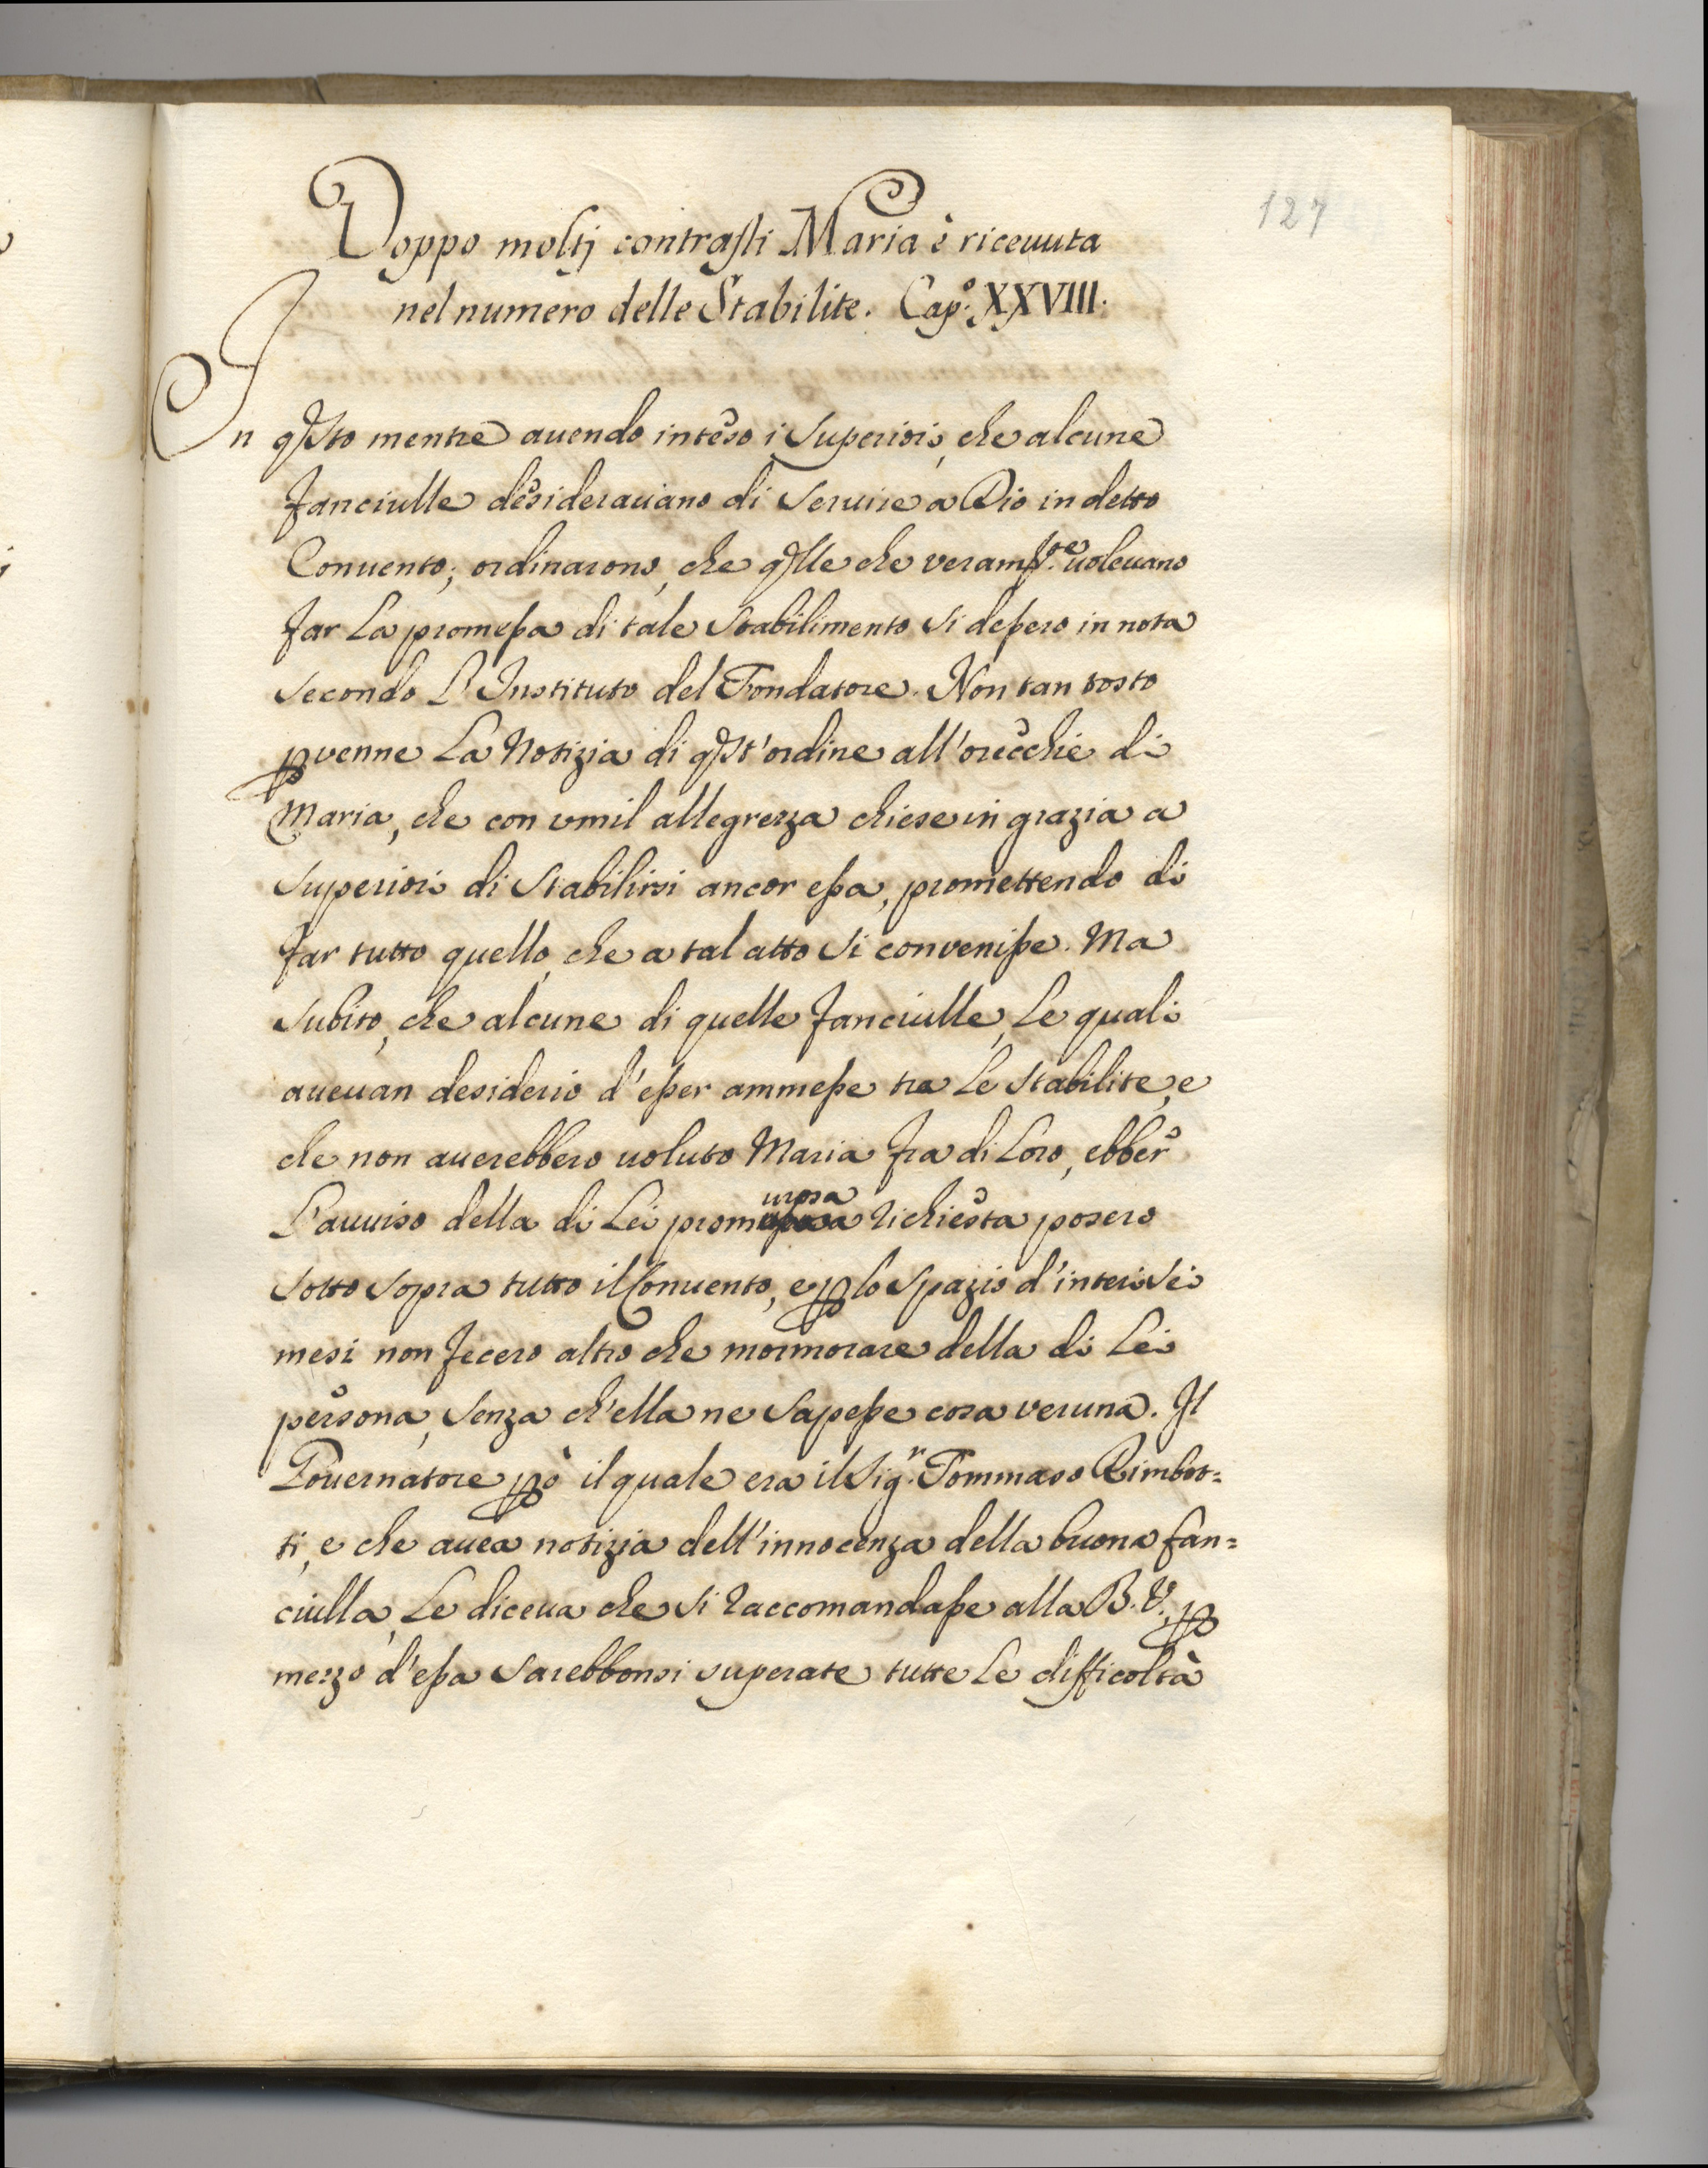 127
Doppo molti contrasti Maria è riceuuta
nel numero delle Stabilite. Cap.º XXVIII.
In qsto mentre auendo inteso i Superiori, che alcune
fanciulle desiderauano di seruire a Dio in detto
Conuento; ordinarono, che qlle che veramte. uoleuano
far La promessa di tale Stabilimento si dessero in nota
secondo L'Instituto del Fondatore. Non tan tosto
pvenne La Notizia di qst'ordine all'orecchie di
Maria, che con vmil allegrezza chiese in grazia a
Superiori di Stabilirsi ancor essa, promettendo di
far tutto quello, che a tal atto si convenisse. Ma
subito, che alcune di quelle fanciulle, Le quali
aueuan desiderio d'esser ammesse tra Le Stabilite, e
che non auerebbero uoluto Maria fra di Loro, ebbero
L'auuiso della di Lei premurosa richiesta posero
sotto sopra tutto il Conuento, e p lo spazio d'interi sei
mesi non fecero altro che mormorare della di Lei
persona, senza ch'ella ne sapesse cosa veruna. Il
Gouernatore pò il quale era il Sig.r Tommaso Rimbot=
ti, e che auea notizia dell'innocenza della buona fan=
ciulla, Le diceua che si raccomandasse alla B. V., p
mezzo d'essa sarebbonsi superate tutte Le difficoltà